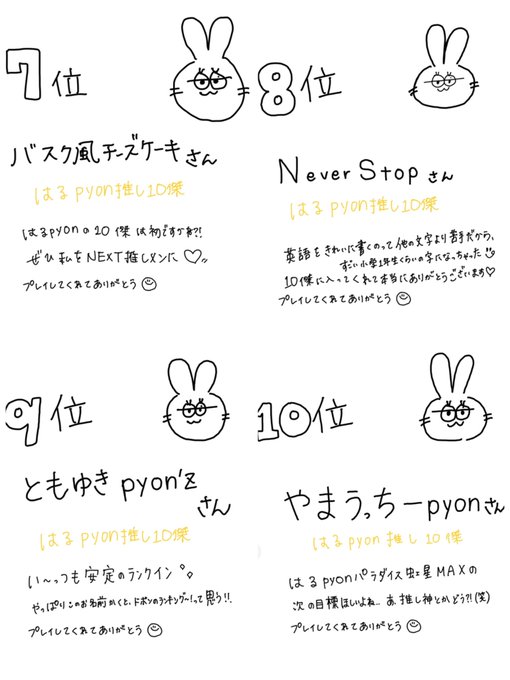 7位
バスク風チーズケーキさん
はるpyon推し10傑
はるpyonの10傑は初ですかね?!
ぜひ私をNEXT推しメンに♡
プレイしてくれてありがとう
8位
Never Stopさん
はるpyon推し10傑
英語をきれいに書くのって他の文字より苦手だから、
すごい小学1年生くらいの字になっちゃった
10傑に入ってくれて本当にありがとうございます♡
プレイしてくれてありがとう
9位
ともゆきpyon'z
さん
はるpyon推し10傑
い〜っつも安定のランクイン
やっぱりこのお名前かくと、ドボンのランキング〜!って思う!!
プレイしてくれてありがとう
10位
やまうっちーpyonさん
はるpyon推し10傑
はるpyonパラダイス虹星MAXの
次の目標ほしいよね…あ、推し神とかどう?!(笑)
プレイしてくれてありがとう